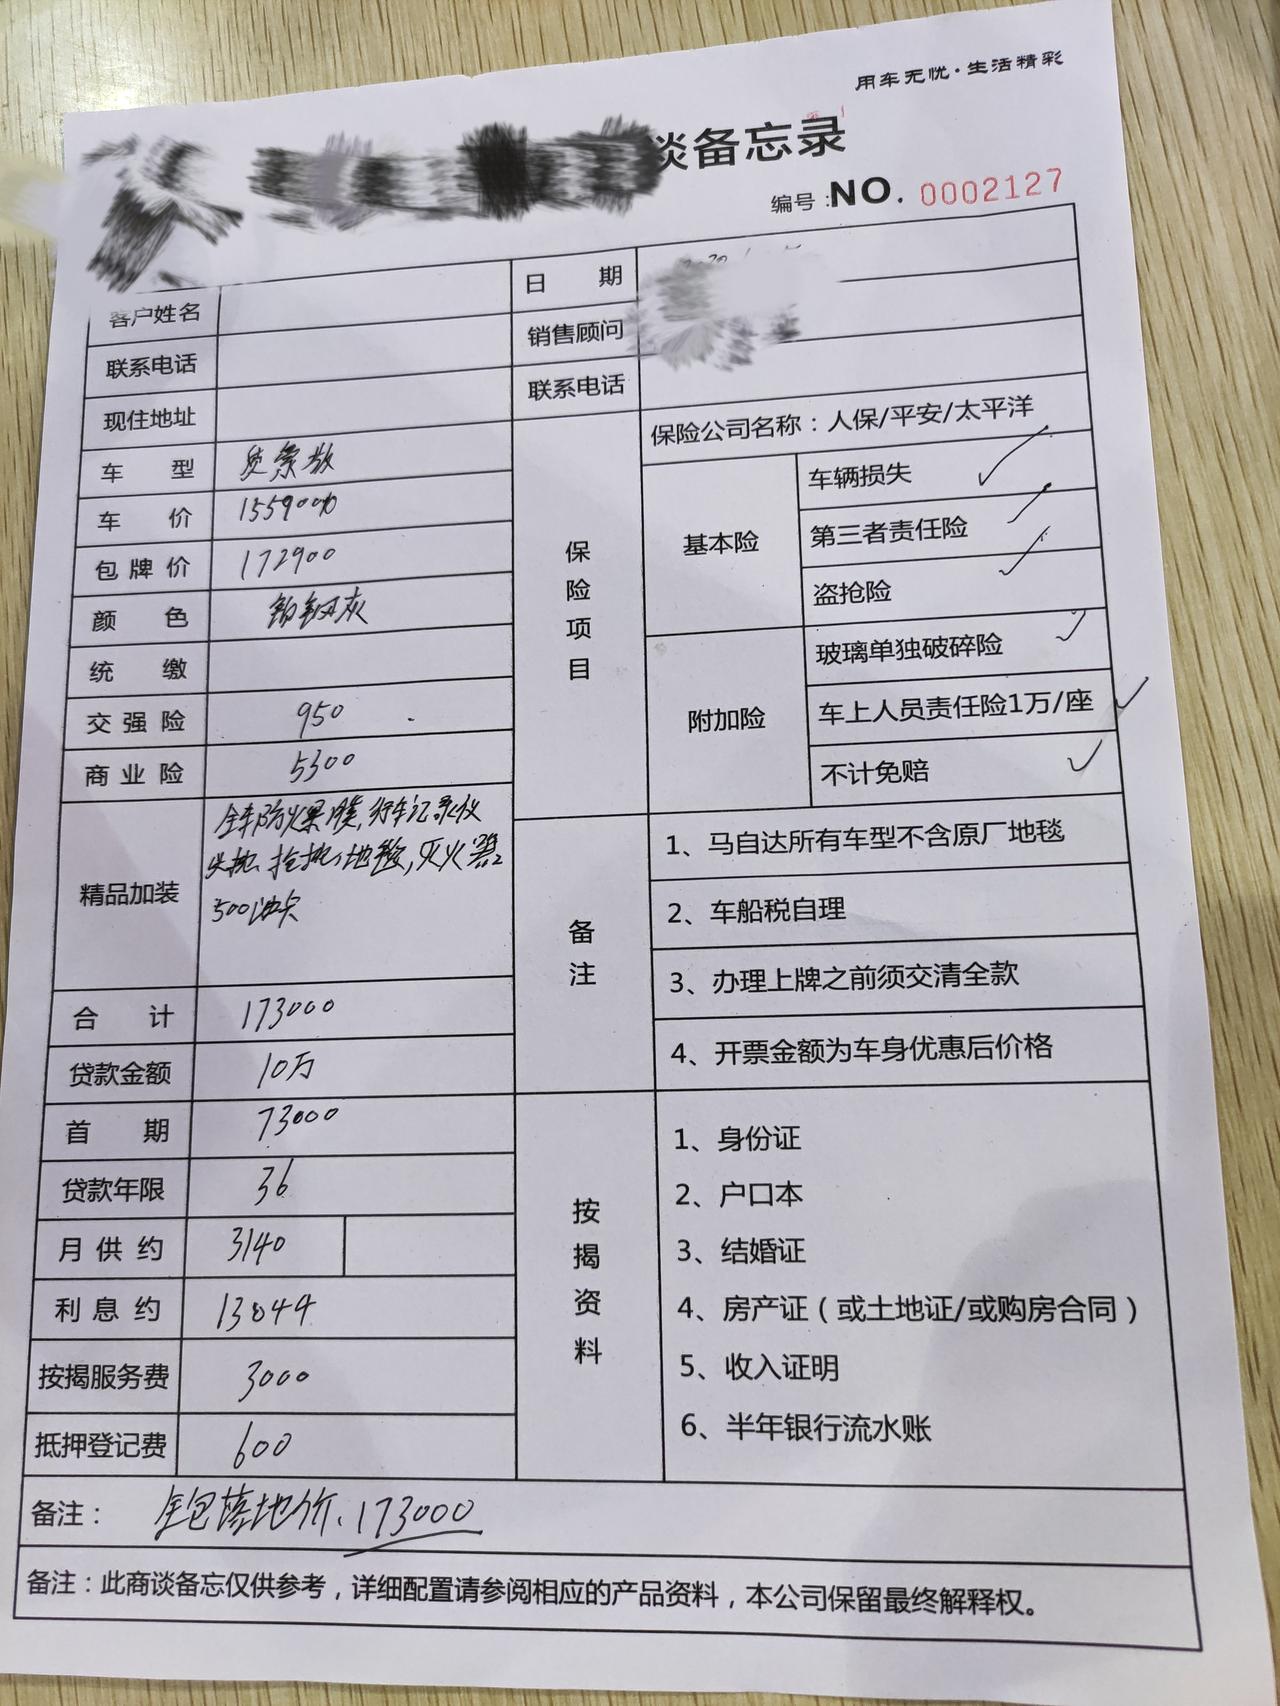 用车无忧·生活精彩
谈备忘录
编号:NO. 0002127
客户姓名
日 期
联系电话
销售顾问
现住地址
联系电话
车 型
车 价 155900
包牌价 172900
颜 色 铂钢灰
统 缴
交强险 950
商业险 5300
精品加装 全车防爆膜,行车记录仪
头枕、抱枕、地毯,灭火器
500油卡
合 计 173000
贷款金额 10万
首 期 73000
贷款年限 36
月供约 3140
利息约 13044
按揭服务费 3000
抵押登记费 600
保险项目
保险公司名称:人保/平安/太平洋
基本险
车辆损失 ✓
第三者责任险 ✓
盗抢险 ✓
附加险
玻璃单独破碎险 ✓
车上人员责任险1万/座 ✓
不计免赔 ✓
备注
1、马自达所有车型不含原厂地毯
2、车船税自理
3、办理上牌之前须交清全款
4、开票金额为车身优惠后价格
按揭资料
1、身份证
2、户口本
3、结婚证
4、房产证(或土地证/或购房合同)
5、收入证明
6、半年银行流水账
备注: 全包落地价、173000
备注:此商谈备忘仅供参考,详细配置请参阅相应的产品资料,本公司保留最终解释权。